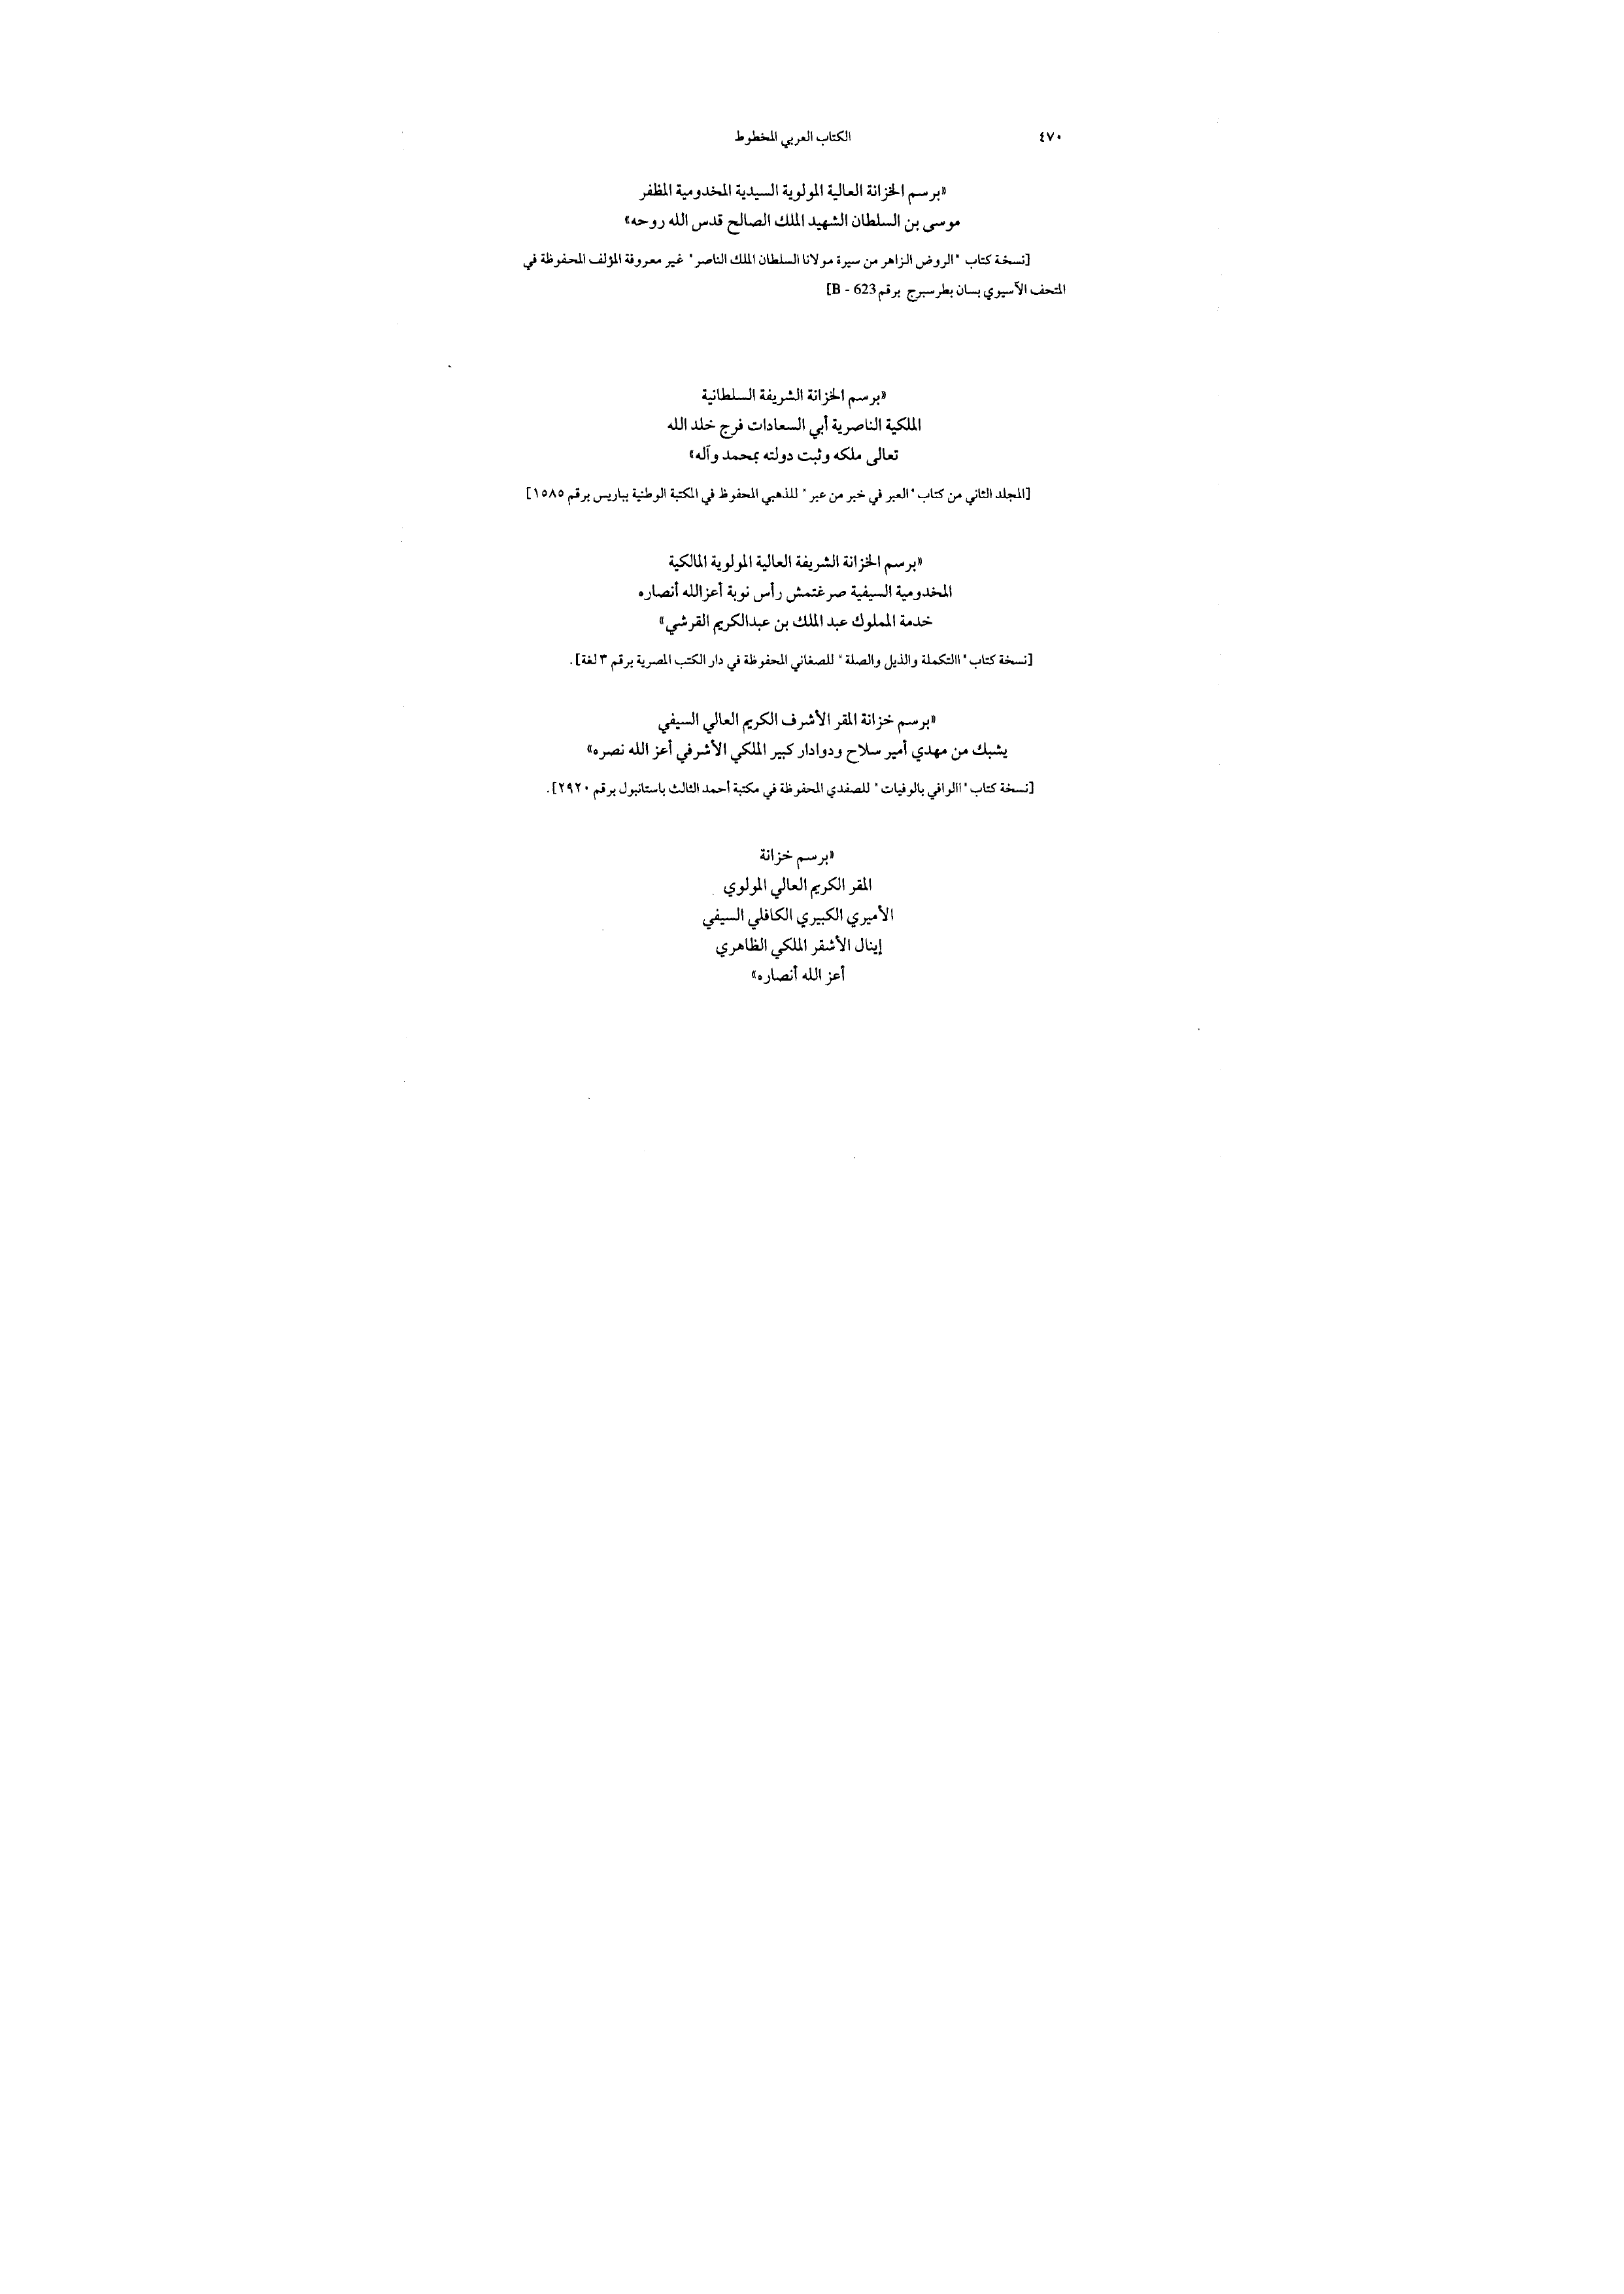 ٤٧٠ الكتاب العربي المخطوط
«برسم الخزانة العالية المولوية السيدية المخدومية المظفر
موسى بن السلطان الشهيد الملك الصالح قدس الله روحه»
[نسخة كتاب "الروض الزاهر من سيرة مولانا السلطان الملك الناصر" غير معروفة المؤلف المحفوظة في
المتحف الآسيوي بسان بطرسبرج برقم B - 623]
«برسم الخزانة الشريفة السلطانية
الملكية الناصرية أبي السعادات فرج خلد الله
تعالى ملكه وثبت دولته بمحمد وآله»
[المجلد الثاني من كتاب "العبر في خبر من عبر" للذهبي المحفوظ في المكتبة الوطنية بباريس برقم ١٥٨٥]
«برسم الخزانة الشريفة العالية المولوية المالكية
المخدومية السيفية صرغتمش رأس نوبة أعزالله أنصاره
خدمة المملوك عبد الملك بن عبدالكريم القرشي»
[نسخة كتاب "االتكملة والذيل والصلة" للصغاني المحفوظة في دار الكتب المصرية برقم ٣ لغة].
«برسم خزانة المقر الأشرف الكريم العالي السيفي
يشبك من مهدي أمير سلاح ودوادار كبير الملكي الأشرفي أعز الله نصره»
[نسخة كتاب "االوافي بالوفيات" للصفدي المحفوظة في مكتبة أحمد الثالث باستانبول برقم ٢٩٢٠].
«برسم خزانة
المقر الكريم العالي المولوي
الأميري الكبيري الكافلي السيفي
إينال الأشقر الملكي الظاهري
أعز الله أنصاره»